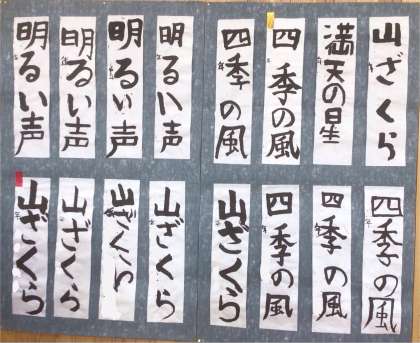 山ざくら
満天の星
四季の風
四季の風
四季の風
四季の風
四季の風
山ざくら
明るい声
明るい声
明るい声
明るい声
山ざくら
山ざくら
山ざくら
山ざくら